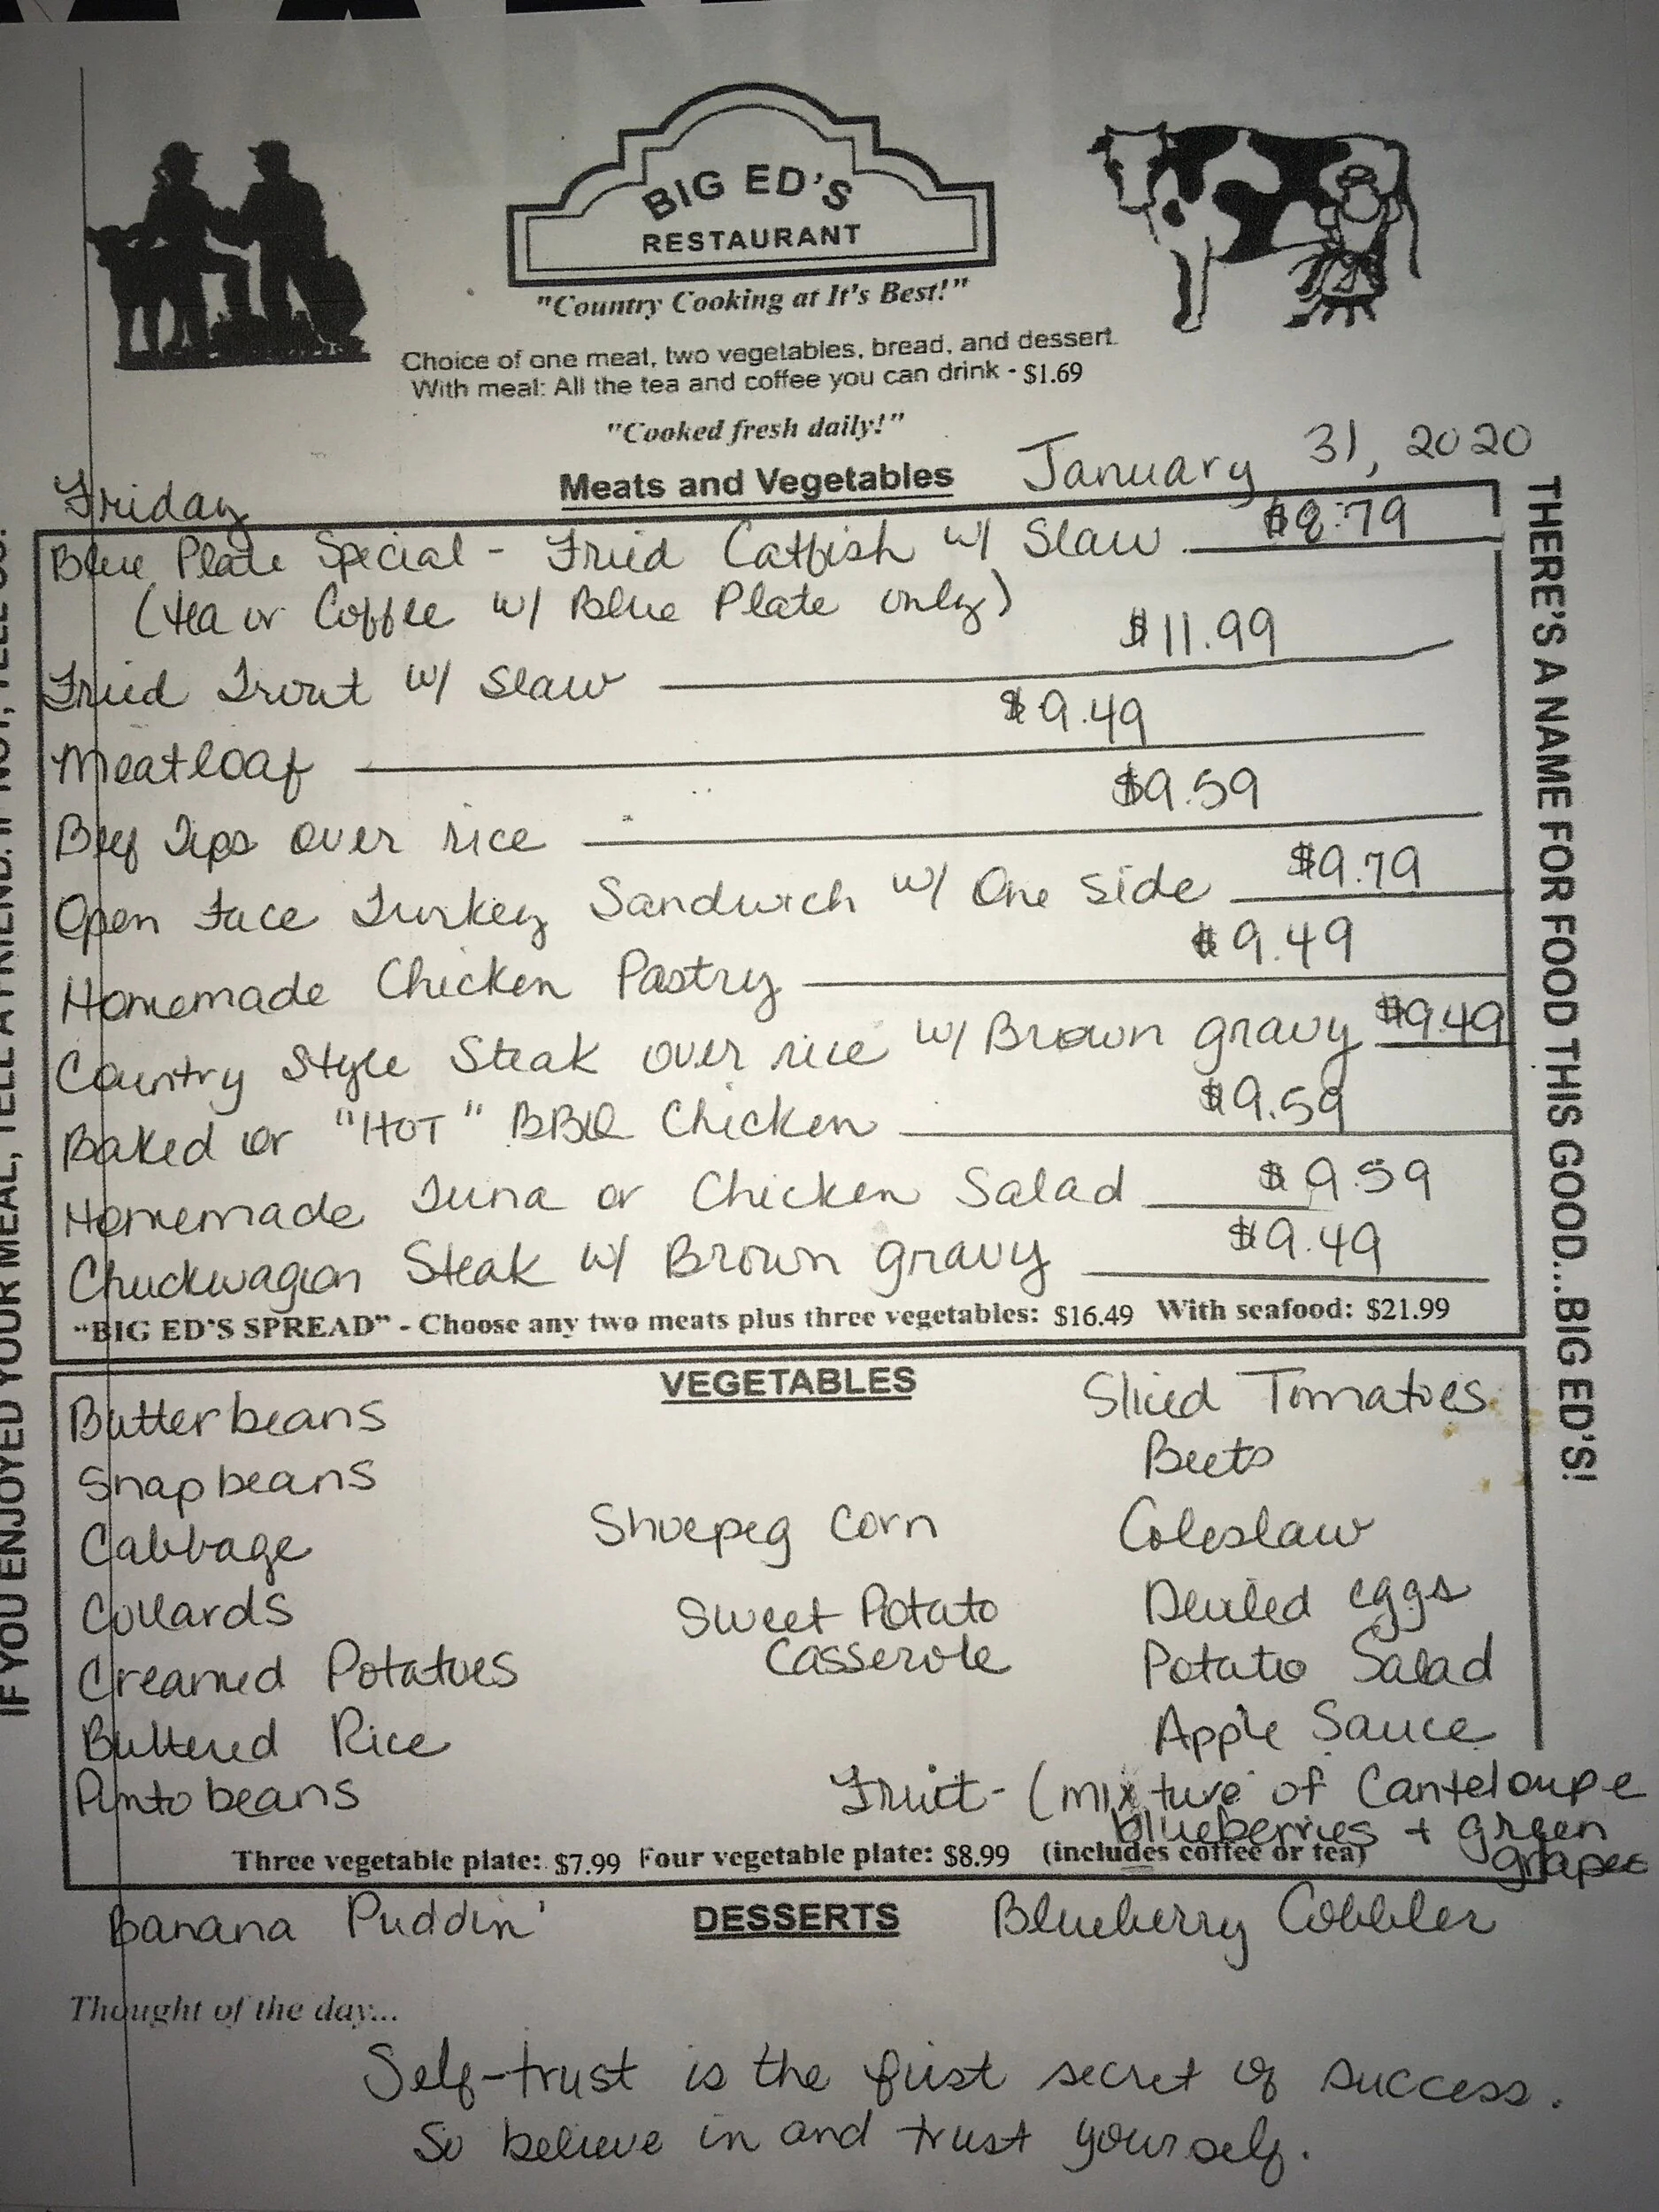 BIG ED'S
RESTAURANT
"Country Cooking at It's Best!"
Choice of one meat, two vegetables, bread, and dessert.
With meal: All the tea and coffee you can drink - $1.69
"Cooked fresh daily!"
Friday Meats and Vegetables January 31, 2020
Blue Plate Special - Fried Catfish w/ Slaw $8.79
(tea or Coffee w/ Blue Plate only)
Fried Trout w/ Slaw $11.99
Meatloaf $9.49
Beef Tips over rice $9.59
Open Face Turkey Sandwich w/ One side $9.79
Homemade Chicken Pastry $9.49
Country Style Steak over rice w/ Brown gravy $9.49
Baked or "HOT" BBQ Chicken $9.59
Homemade Tuna or Chicken Salad $9.59
Chuckwagon Steak w/ Brown gravy $9.49
"BIG ED'S SPREAD" - Choose any two meats plus three vegetables: $16.49 With seafood: $21.99
VEGETABLES
Butter beans
Snap beans
Cabbage
Collards
Creamed Potatoes
Buttered Rice
Pinto beans
Shoepeg Corn
Sweet Potato
Casserole
Sliced Tomatoes
Beets
Coleslaw
Deviled eggs
Potato Salad
Apple Sauce
Fruit- (mixture of Canteloupe
blueberries + green
grapes
Three vegetable plate: $7.99 Four vegetable plate: $8.99 (includes coffee or tea)
Banana Puddin' DESSERTS Blueberry Cobbler
Thought of the day...
Self-trust is the first secret of success.
So believe in and trust yourself.
IF YOU ENJOYED YOUR MEAL, TELL A FRIEND. IF NOT, TELL US!
THERE'S A NAME FOR FOOD THIS GOOD...BIG ED'S!